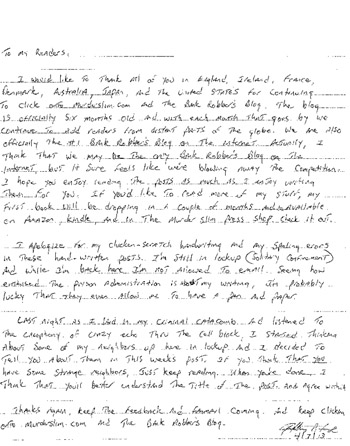 To My Readers,
I would like to Thank All of you in England, Ireland, France,
Denmark, Australia, Japan, And the United States for Continuing
To click onto Murderslim.com And The Bank Robber's Blog. The blog
is officially six months old. And with each month that goes by we
Continue To Add readers from distant parts of the globe. We are Also
officially the #1 Bank Robber's Blog on The Internet. Actually, I
Think That we may be the only Bank Robber's Blog on The
Internet, but it sure feels like we're blowing away the Competition.
I hope you enjoy reading the posts as much as I enjoy writing
Them for you. If you'd like To read more of my stuff, my
First book will be dropping in a Couple of months And available
on Amazon, Kindle, And in The Murder Slim Press Shop. Check it out.
I Apologize for my chicken-scratch handwriting and my spelling errors
in These hand-written posts. I'm still in lockup (Solitary Confinement)
And while I'm back here I'm not Allowed To email. Seeing how
the prison Administration is About my writing, I'm probably
lucky That They even allow me To have a pen And paper.
Last night as I laid in my Criminal catacomb And listened To
The Cacophony of crazy echo Thru The Cell block, I started Thinking
About some of my neighbors up here in lockup. And I decided To
Tell you About Them in This weeks post. If you Think That you
have some strange neighbors, Just keep reading. When you're done I
Think That you'll better understand The Title of The post. And Agree with it.
Thanks Again, keep The feedback And Coming. And keep clicking
onto Murderslim.com And The Bank Robber's Blog.